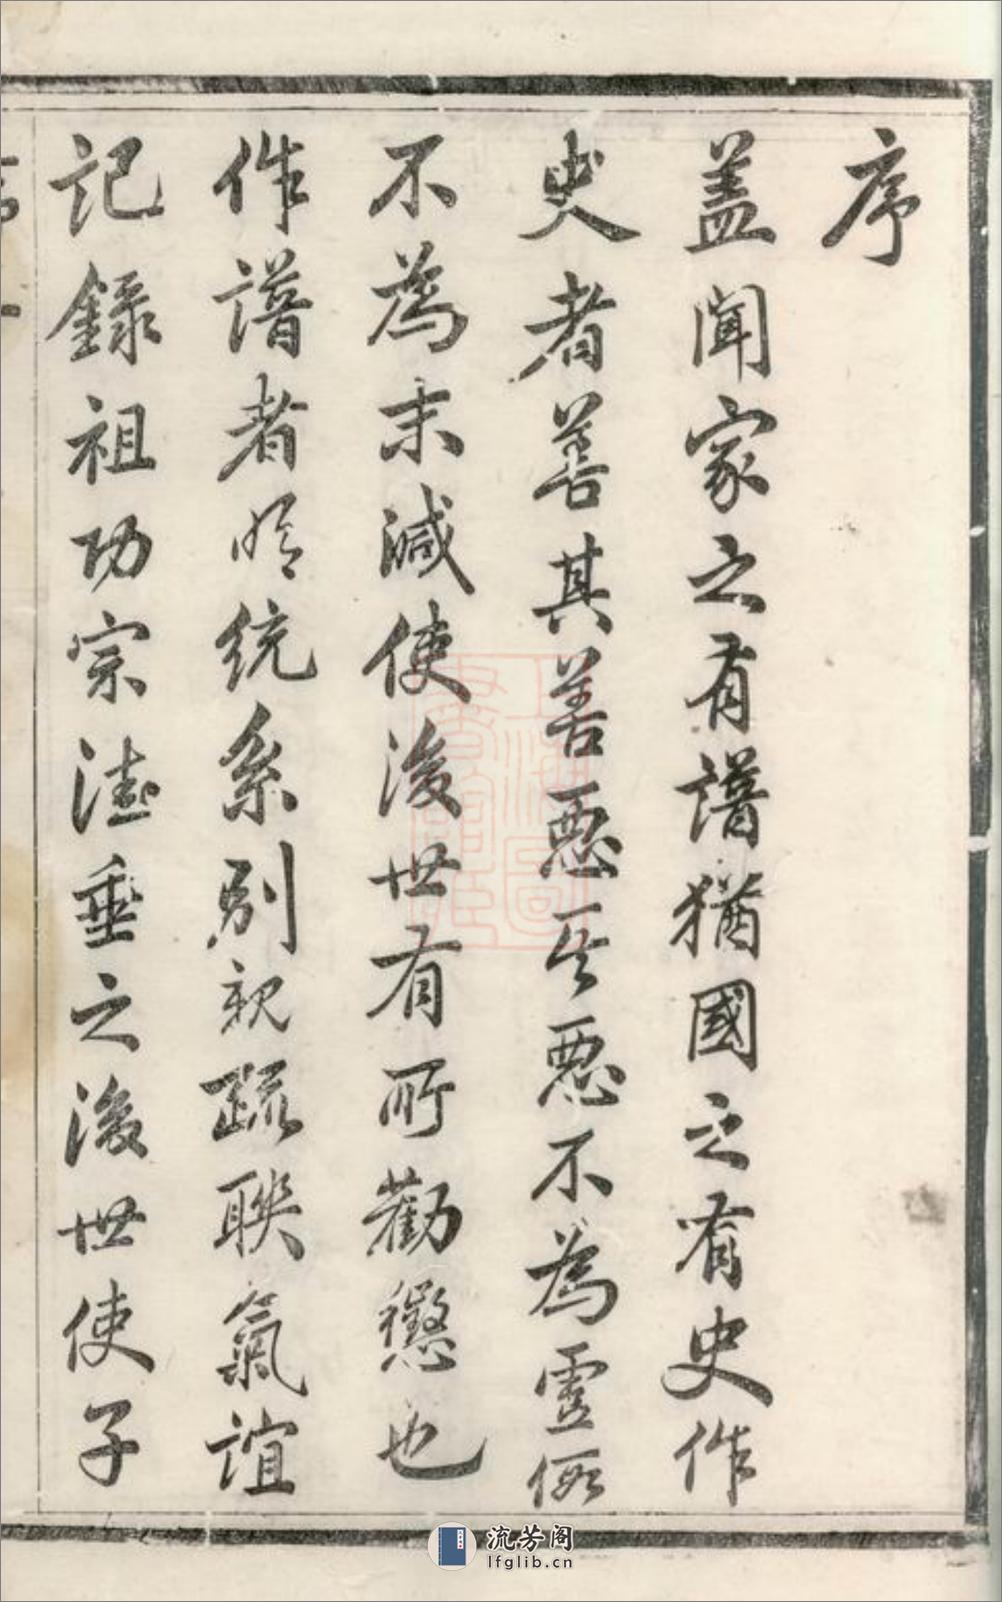 序
盖聞家之有譜猶國之有史作
史者善其善惡其惡不為虛假
不為末減使後世有所勸懲也
作譜者明統系別親疏聯氣誼
記錄祖功宗德垂之後世使子
流芳阁
lfglib.cn